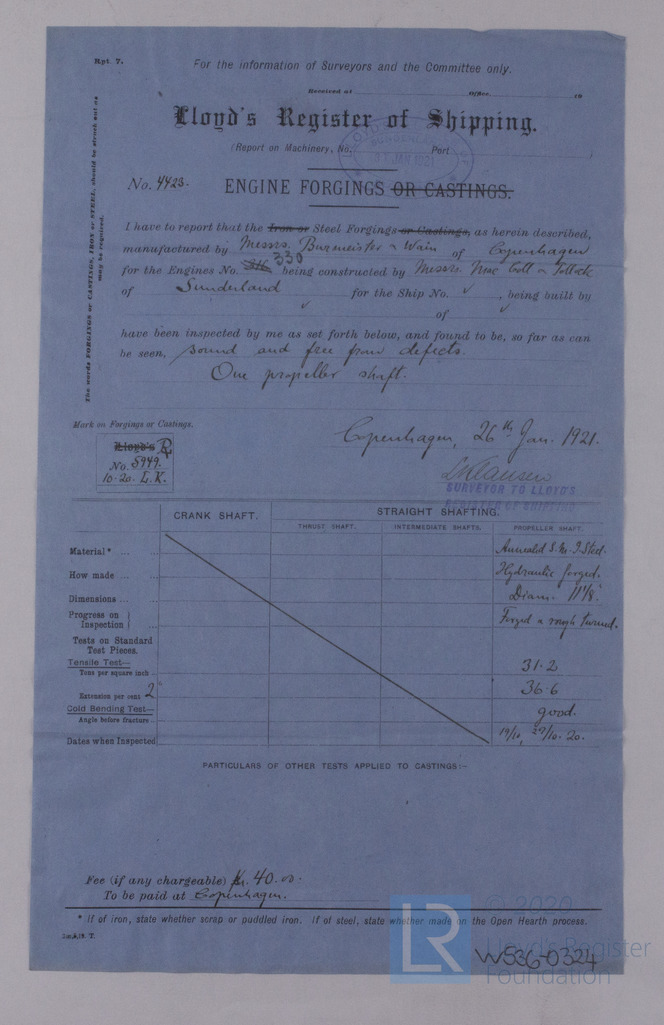 Rpt. 7.
For the information of Surveyors and the Committee only.
Received at Office 19
Lloyd's Register of Shipping.
(Report on Machinery, No. Port
SUNDERLAND
No. 4423.
ENGINE FORGINGS OR CASTINGS.
The words FORGINGS or CASTINGS, IRON or STEEL, should be struck out as
may be required.
I have to report that the Iron or Steel Forgings or Castings, as herein described,
manufactured by Messrs. Burmeister & Wain of Copenhagen
for the Engines No. 330 being constructed by Messrs. Mac Coll & Pollock
of Sunderland for the Ship No. ✓, being built by
✓ of ✓
have been inspected by me as set forth below, and found to be, so far as can
be seen, sound and free from defects.
One propeller shaft.
Mark on Forgings or Castings.
Copenhagen, 26th Jan. 1921.
Lloyd's LR
No. 5949.
10.20. L.K.
SURVEYOR TO LLOYD'S
REGISTER OF SHIPPING
CRANK SHAFT. STRAIGHT SHAFTING.
THRUST SHAFT. INTERMEDIATE SHAFTS. PROPELLER SHAFT.
Material* ... ... Annealed S.M.I. Steel.
How made ... ... Hydraulic forged.
Dimensions ... ... Diam. 11⅛".
Progress on Inspection } ... Forged & rough turned.
Tests on Standard
Test Pieces.
Tensile Test—
Tons per square inch .. 31.2
Extension per cent 2" 36.6
Cold Bending Test— good.
Angle before fracture ..
Dates when Inspected 19/10, 29/10. 20.
PARTICULARS OF OTHER TESTS APPLIED TO CASTINGS:–
Fee (if any chargeable) Kr. 40.00.
To be paid at Copenhagen.
* If of iron, state whether scrap or puddled iron. If of steel, state whether made on the Open Hearth process.
LR
© 2020
Lloyd's Register
Foundation
W536-0324